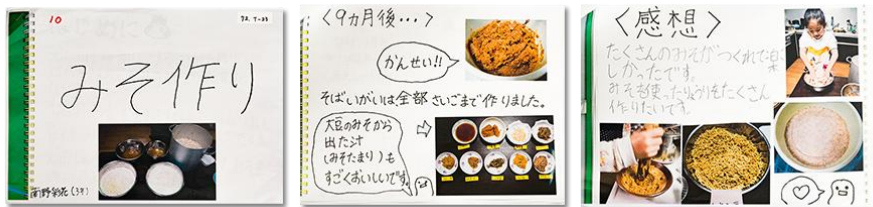 10
みそ作り
〈9ヵ月後・・・〉
かんせい!!
そばいがいは全部さいごまで作りました。
大豆のみそから
出た汁
(みそたまり)も
すごくおいしいです。
〈感想〉
たくさんのみそがつくれて楽
しかったです。
みそを使ったりょうりをたくさん
作りたいです